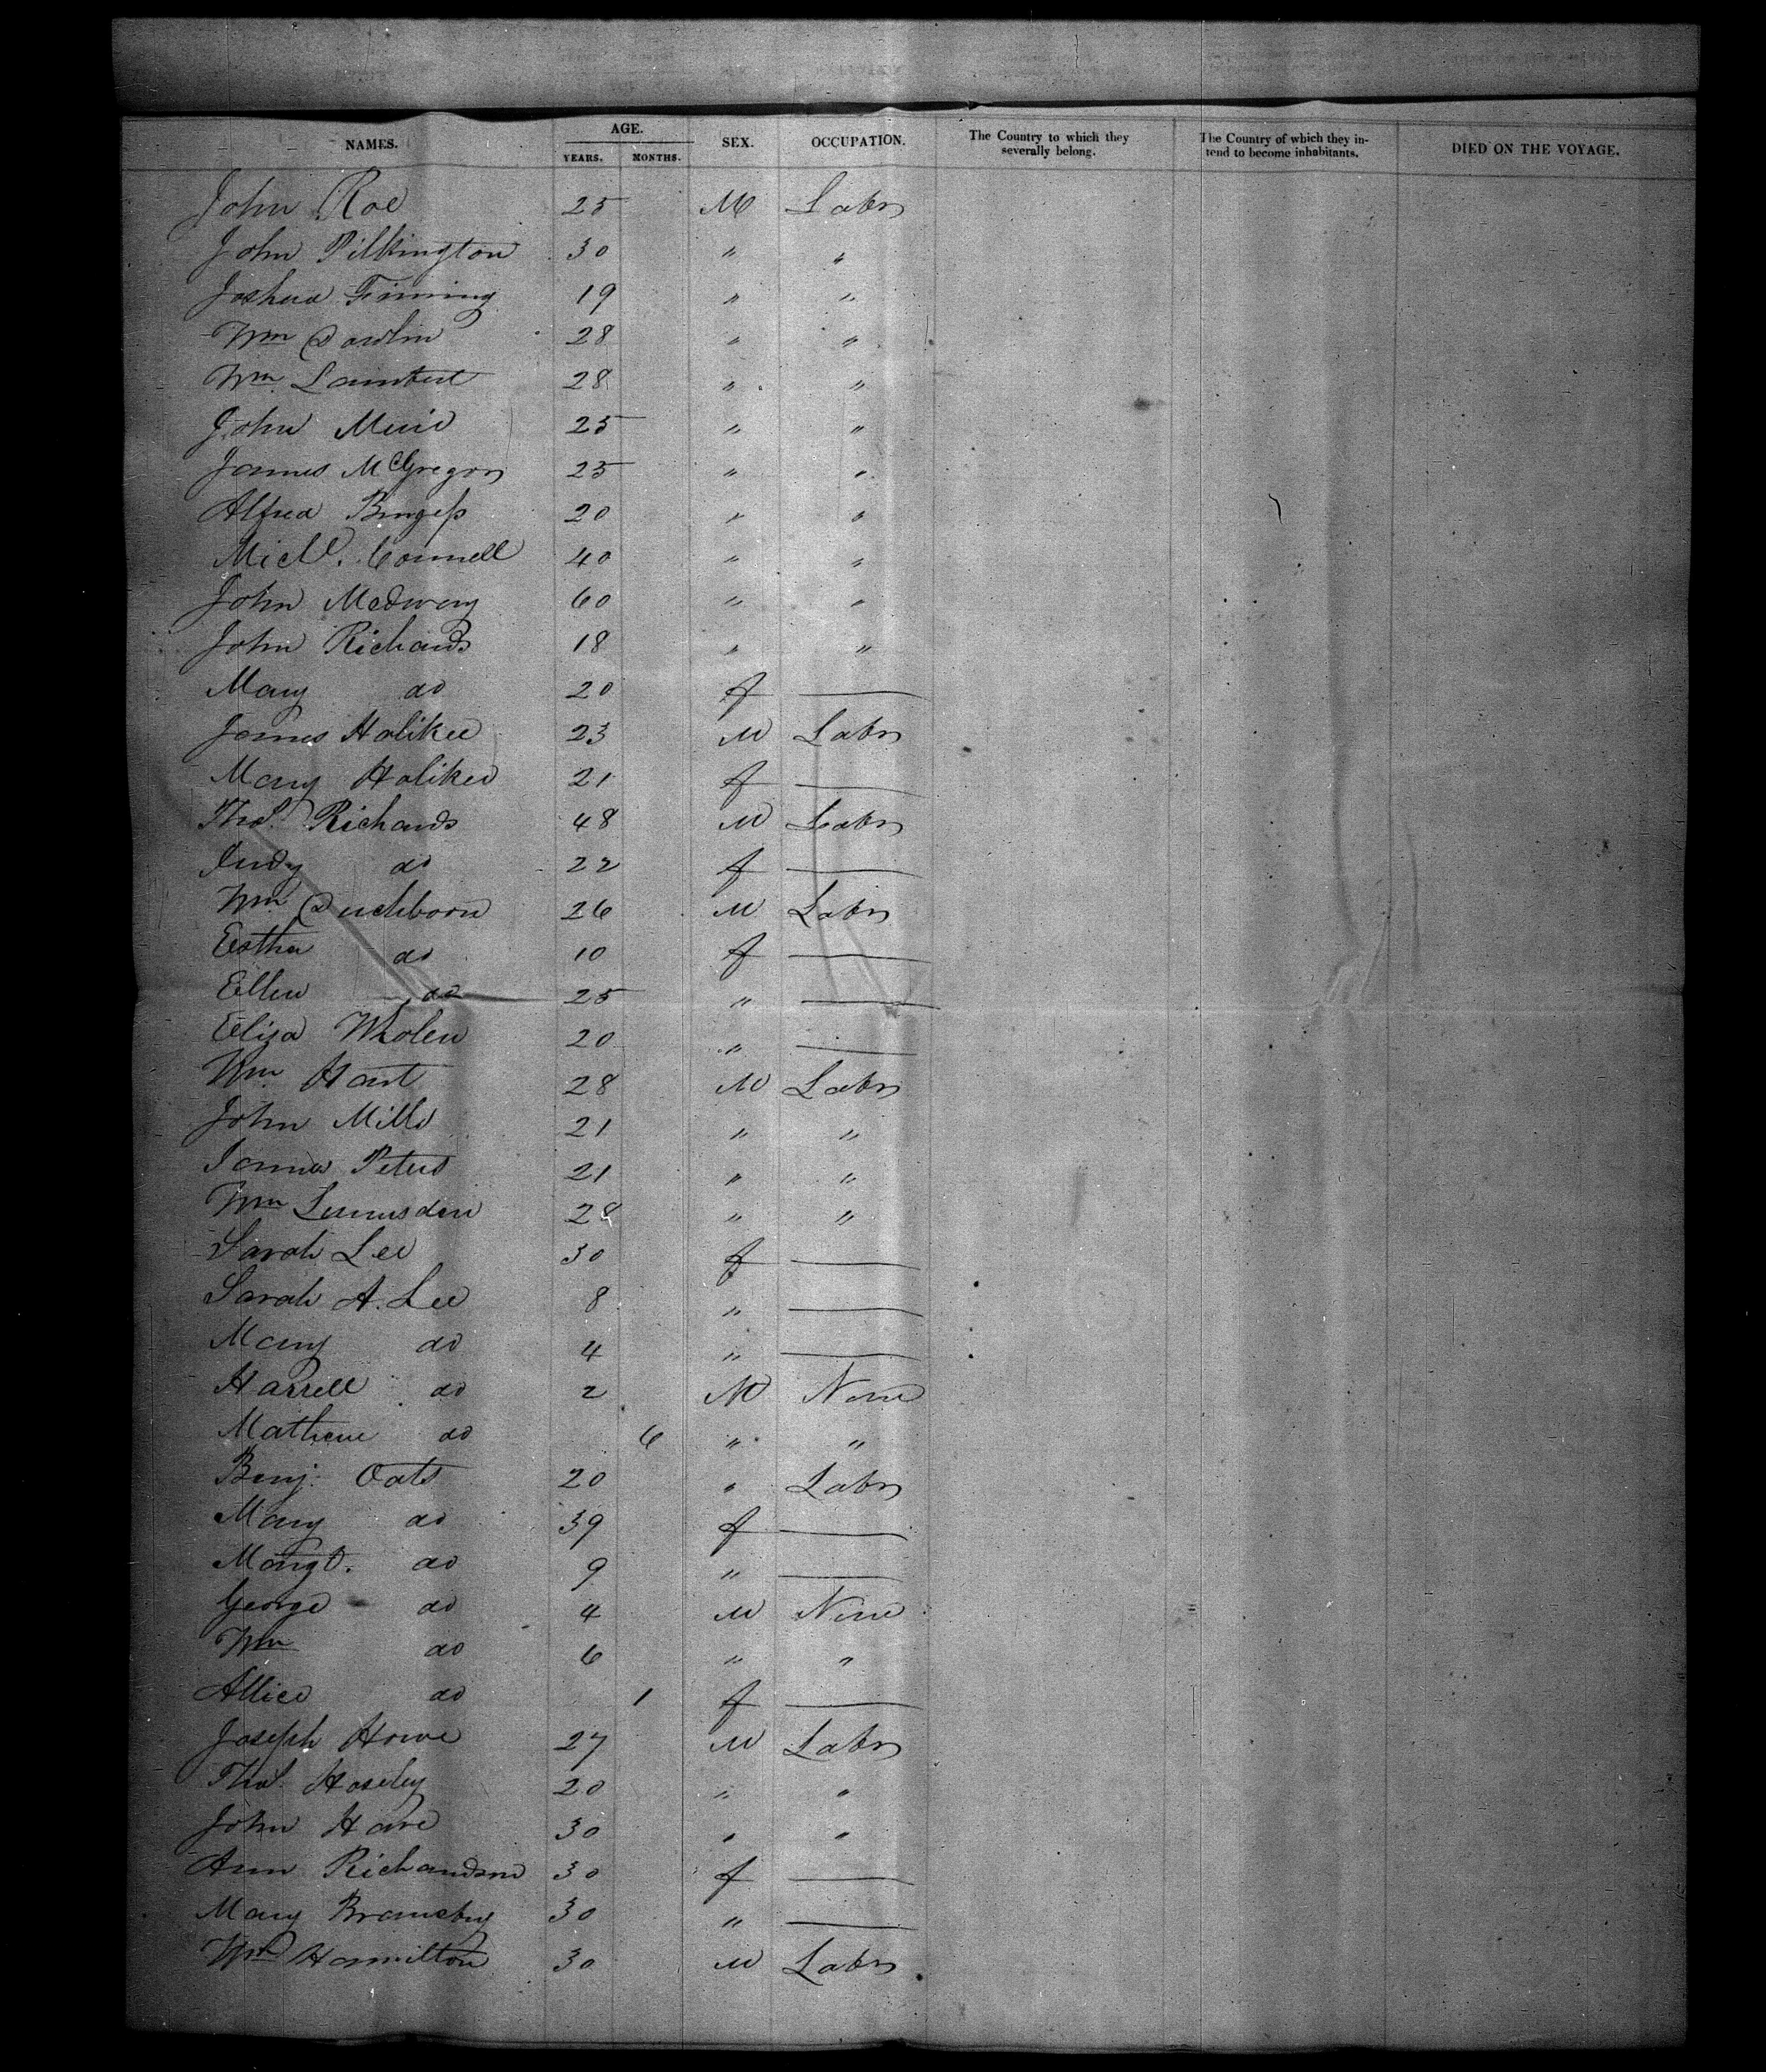 NAMES. AGE. SEX. OCCUPATION. The Country to which they severally belong. The Country of which they intend to become inhabitants. DIED ON THE VOYAGE.
YEARS. MONTHS.
John Roe 25 M Labr
John Pilkington 30 " "
Joshua Finning 19 " "
Wm Dowlin 28 " "
Wm Lambert 28 " "
John Muir 25 " "
James McGregor 25 " "
Alfred Burgess 20 " "
Michl. Connell 40 " "
John Medway 60 " "
John Richards 18 " "
Mary do 20 f —
James Holikee 23 M Labr
Mary Holikee 21 f —
Thos. Richards 48 M Labr
Judy do 22 f —
Wm Duchborn 26 M Labr
Esther do 10 f —
Ellen do 25 " —
Eliza Wholen 20 " —
Wm Hart 28 M Labr
John Mills 21 " "
James Peters 21 " "
Wm Lumusden 28 " "
Sarah Lee 30 f —
Sarah A. Lee 8 " —
Mary do 4 " —
Harrell do 2 M None
Mathew do 6 " "
Benj. Oats 20 " Labr
Mary do 39 f —
Margt. do 9 " —
George do 4 M None
Wm do 6 " "
Allice do 1 f —
Joseph Howe 27 M Labr
Thos. Hoseley 20 " "
John Hare 30 " "
Ann Richardson 30 f —
Mary Bramsby 30 " —
Wm Hamilton 30 M Labr